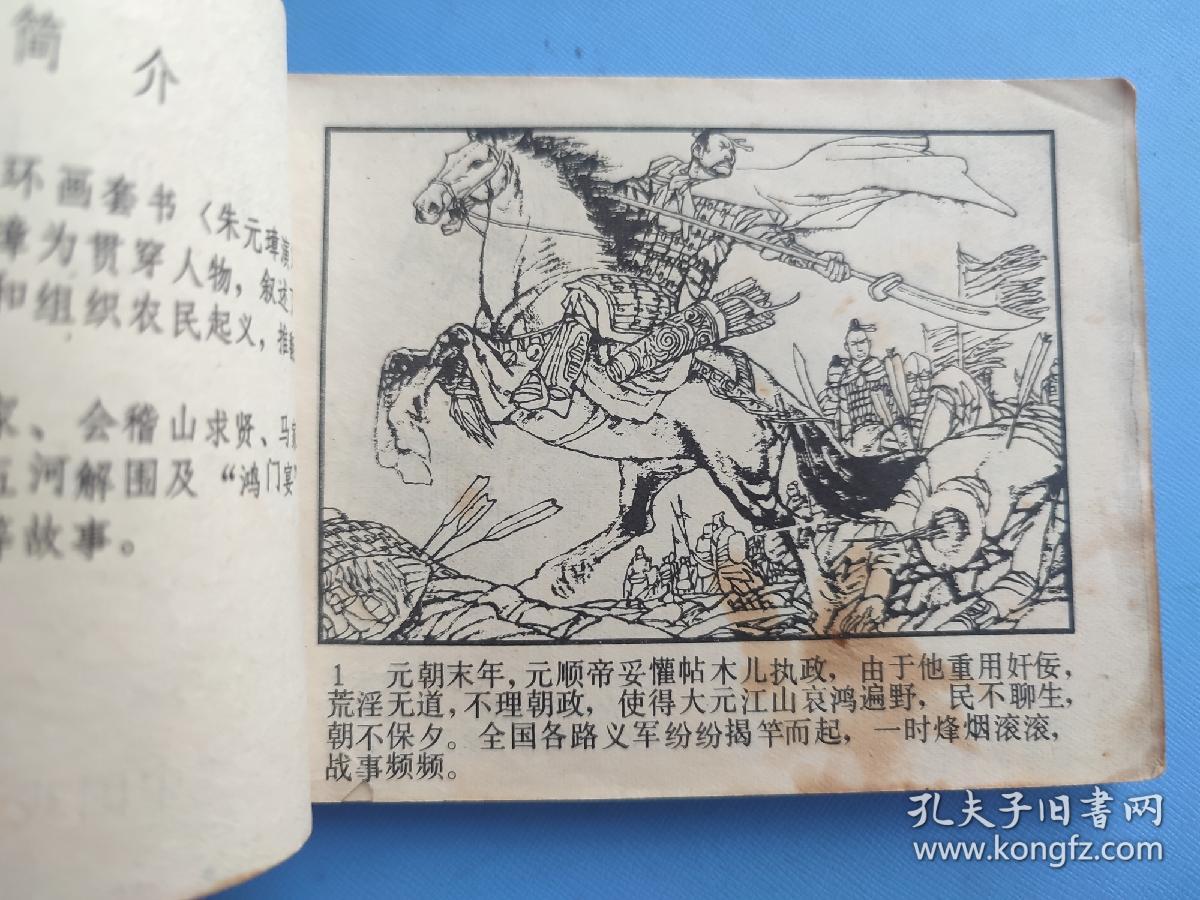 简介
环画套书〈朱元璋演
璋为贯穿人物，叙述了
和组织农民起义，推
、会稽山求贤、马
五河解围及“鸿门宴”
等故事。
1 元朝末年，元顺帝妥懽帖木儿执政，由于他重用奸佞，
荒淫无道，不理朝政，使得大元江山哀鸿遍野，民不聊生，
朝不保夕。全国各路义军纷纷揭竿而起，一时烽烟滚滚，
战事频频。
孔夫子旧书网
www.kongfz.com